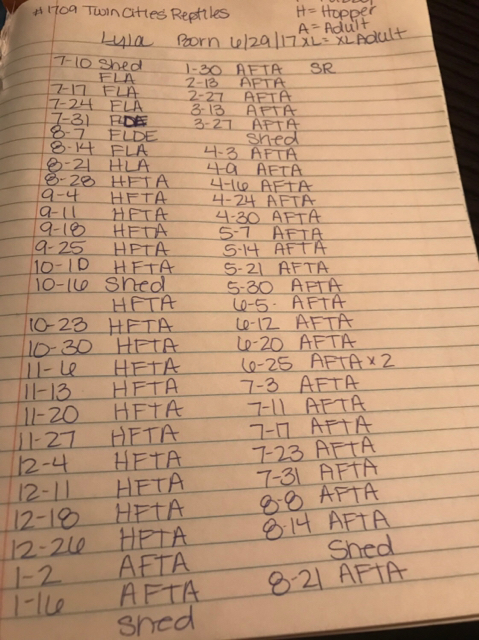 #1709 Twin Cities Reptiles
H = Hopper
A = Adult
Lyla Born 6/29/17 XL = XL Adult
7-10 Shed
FLA
7-17 FLA
7-24 FLA
7-31 FLDE
8-7 FLDE
8-14 FLA
8-21 HLA
8-28 HFTA
9-4 HFTA
9-11 HFTA
9-18 HFTA
9-25 HFTA
10-10 HFTA
10-16 Shed
HFTA
10-23 HFTA
10-30 HFTA
11-6 HFTA
11-13 HFTA
11-20 HFTA
11-27 HFTA
12-4 HFTA
12-11 HFTA
12-18 HFTA
12-26 HFTA
1-2 AFTA
1-16 AFTA
Shed
1-30 AFTA SR
2-13 AFTA
2-27 AFTA
3-13 AFTA
3-27 AFTA
Shed
4-3 AFTA
4-9 AFTA
4-16 AFTA
4-24 AFTA
4-30 AFTA
5-7 AFTA
5-14 AFTA
5-21 AFTA
5-30 AFTA
6-5 AFTA
6-12 AFTA
6-20 AFTA
6-25 AFTA x 2
7-3 AFTA
7-11 AFTA
7-17 AFTA
7-23 AFTA
7-31 AFTA
8-8 AFTA
8-14 AFTA
Shed
8-21 AFTA